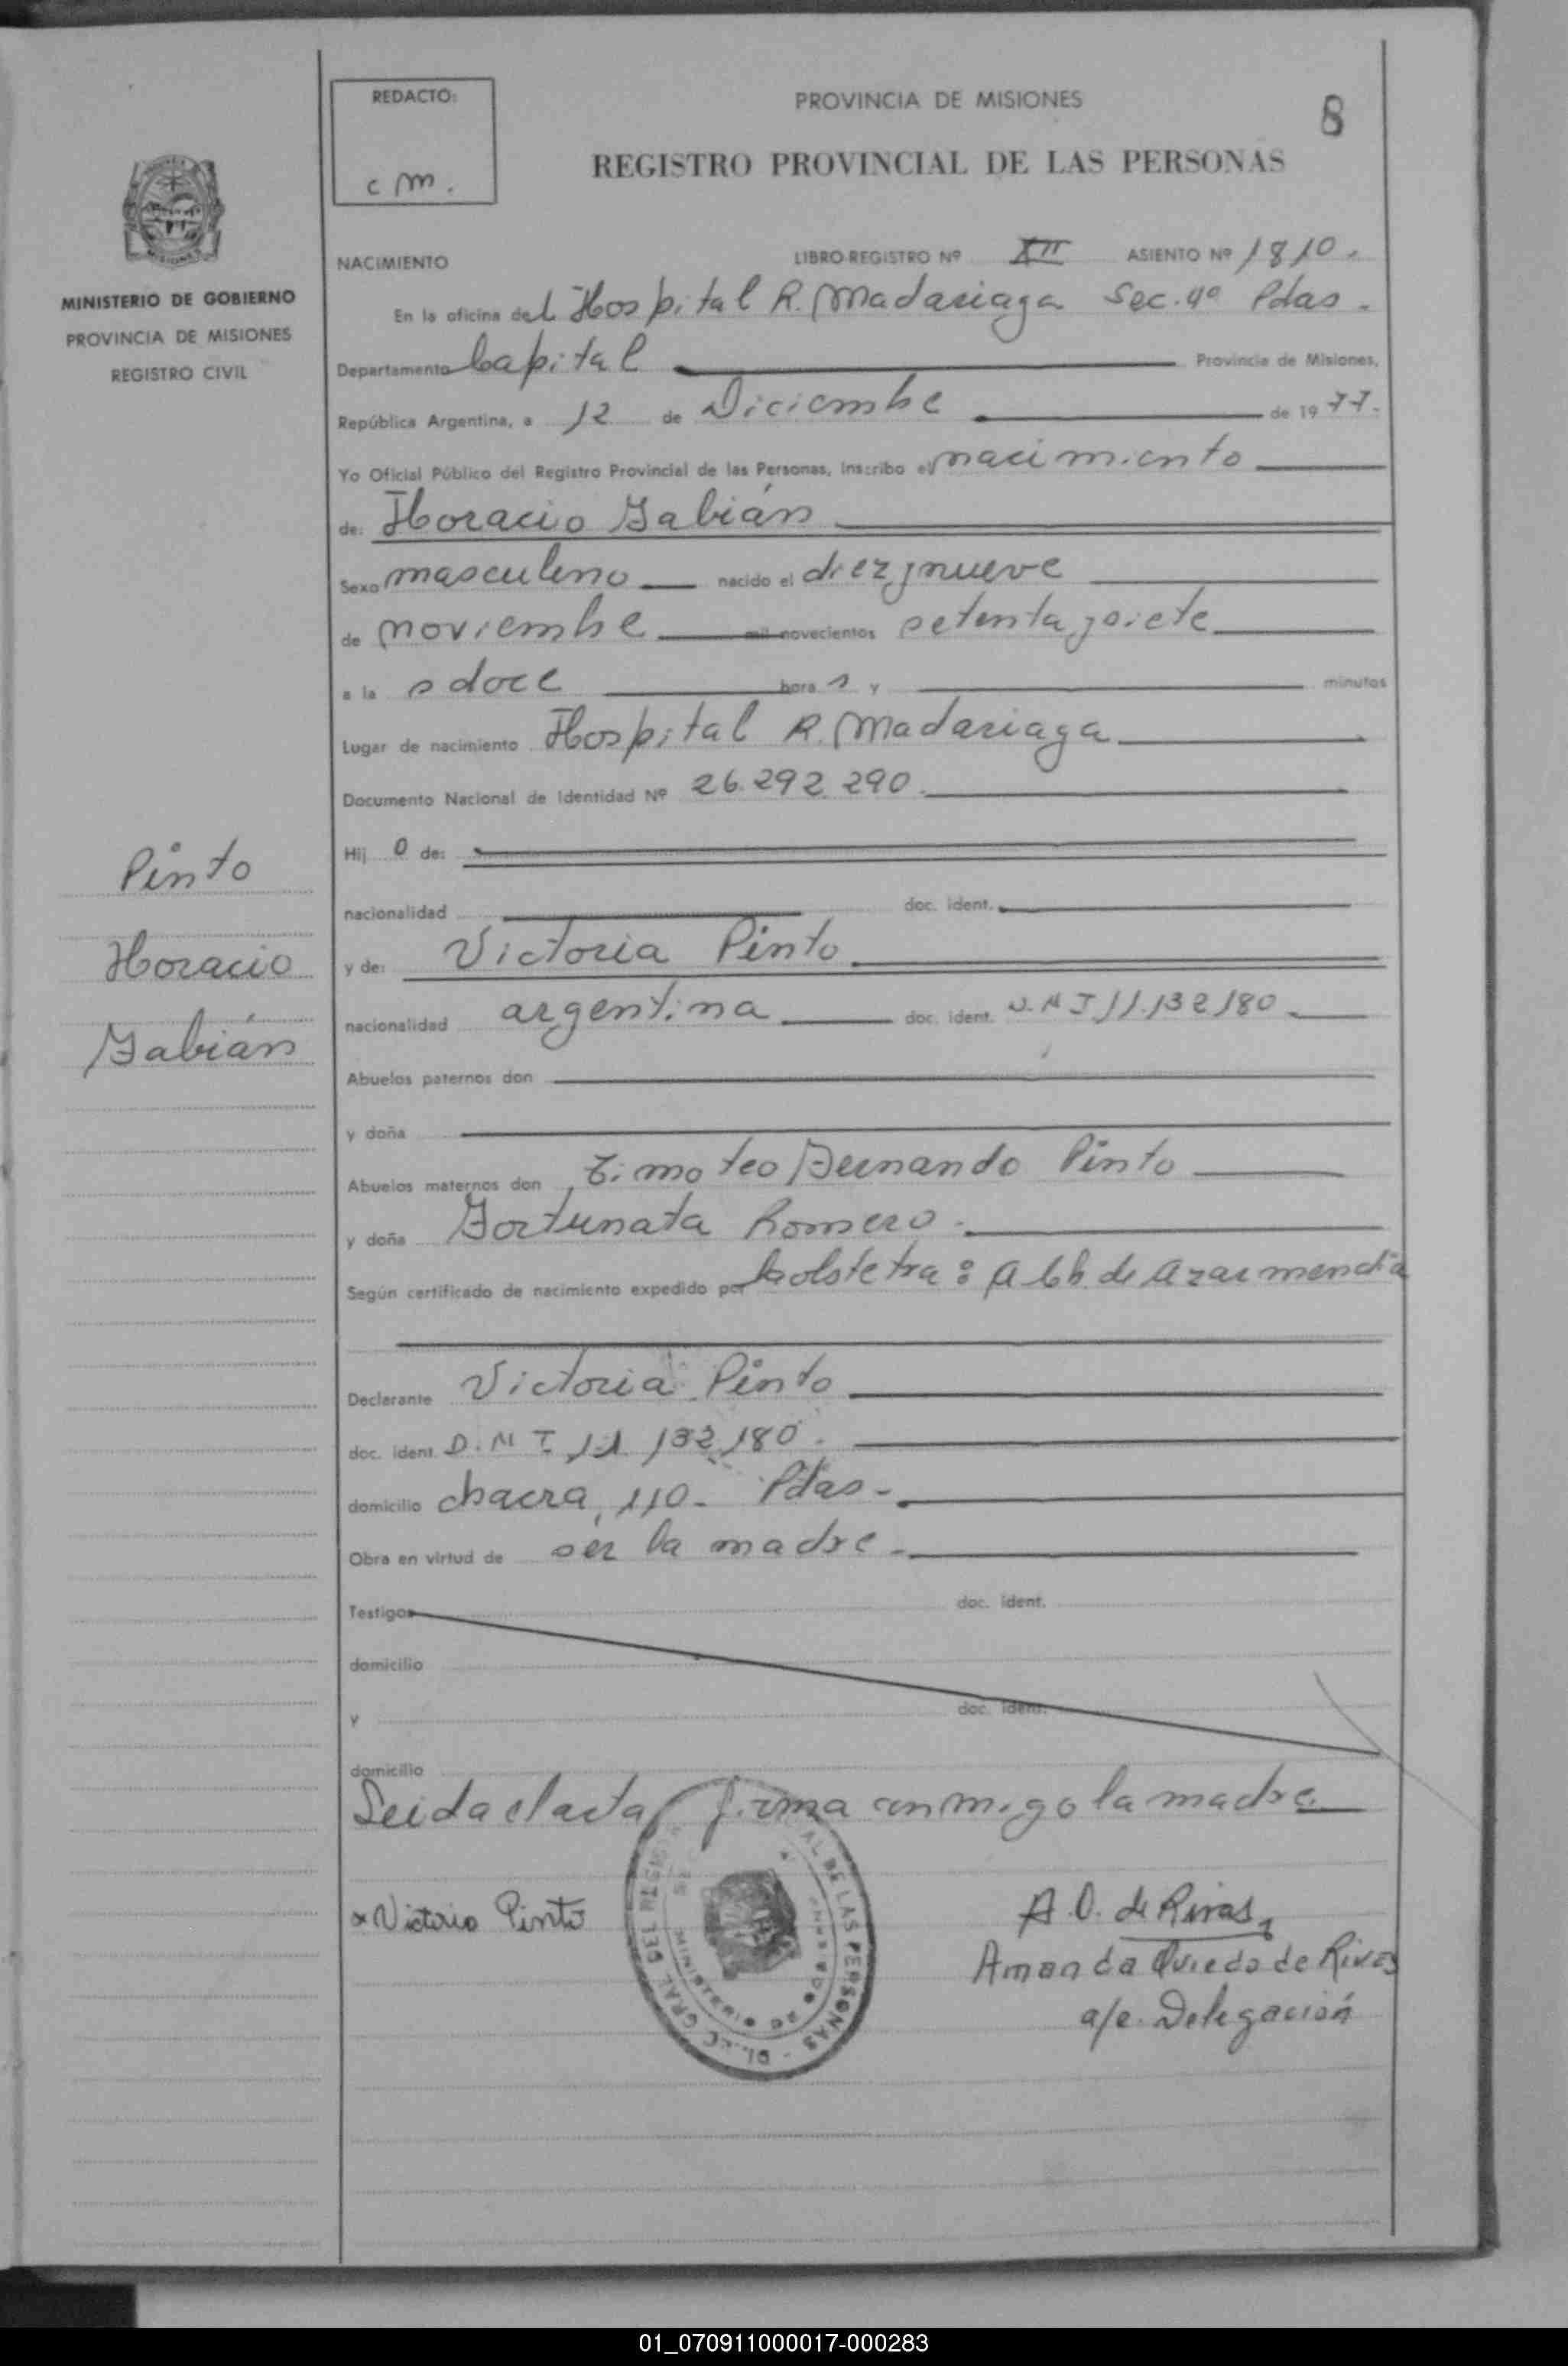 REDACTO:
c m.
PROVINCIA DE MISIONES
8
REGISTRO PROVINCIAL DE LAS PERSONAS
MINISTERIO DE GOBIERNO
PROVINCIA DE MISIONES
REGISTRO CIVIL
Pinto
Horacio
Fabián
NACIMIENTO LIBRO-REGISTRO Nº XII ASIENTO Nº 1810.
En la oficina del Hospital R. Madariaga Sec. 4a Pdas.
Departamento Capital Provincia de Misiones,
República Argentina, a 12 de Diciembre de 1977.
Yo Oficial Público del Registro Provincial de las Personas, Inscribo el nacimiento
de: Horacio Fabián
Sexo masculino nacido el diez y nueve
de noviembre mil novecientos setenta y siete
a la s doce hora s y minutos
Lugar de nacimiento Hospital R. Madariaga
Documento Nacional de Identidad Nº 26.292.290.
Hij o de:
nacionalidad doc. ident.
y de: Victoria Pinto
nacionalidad argentina doc. ident. D.N.I 11.132180
Abuelos paternos don
y doña
Abuelos maternos don Timoteo Fernando Pinto
y doña Fortunata Romero.
Según certificado de nacimiento expedido por la obstetra: A Ch. de Azarmendia
Declarante Victoria Pinto
doc. ident. D.N I 11 132180.
domicilio chacra, 110- Pdas-
Obra en virtud de ser la madre-
Testigos doc. ident.
domicilio
y doc. ident.
domicilio
Leida el acta firma conmigo la madre
x Victoria Pinto
A.O. de Rivas
Amanda Oviedo de Rivas
a/c. Delegación
DE LAS PERSONAS - DIREC GRAL DEL REGISTRO
MINISTERIO DE GOBIERNO
01_070911000017-000283